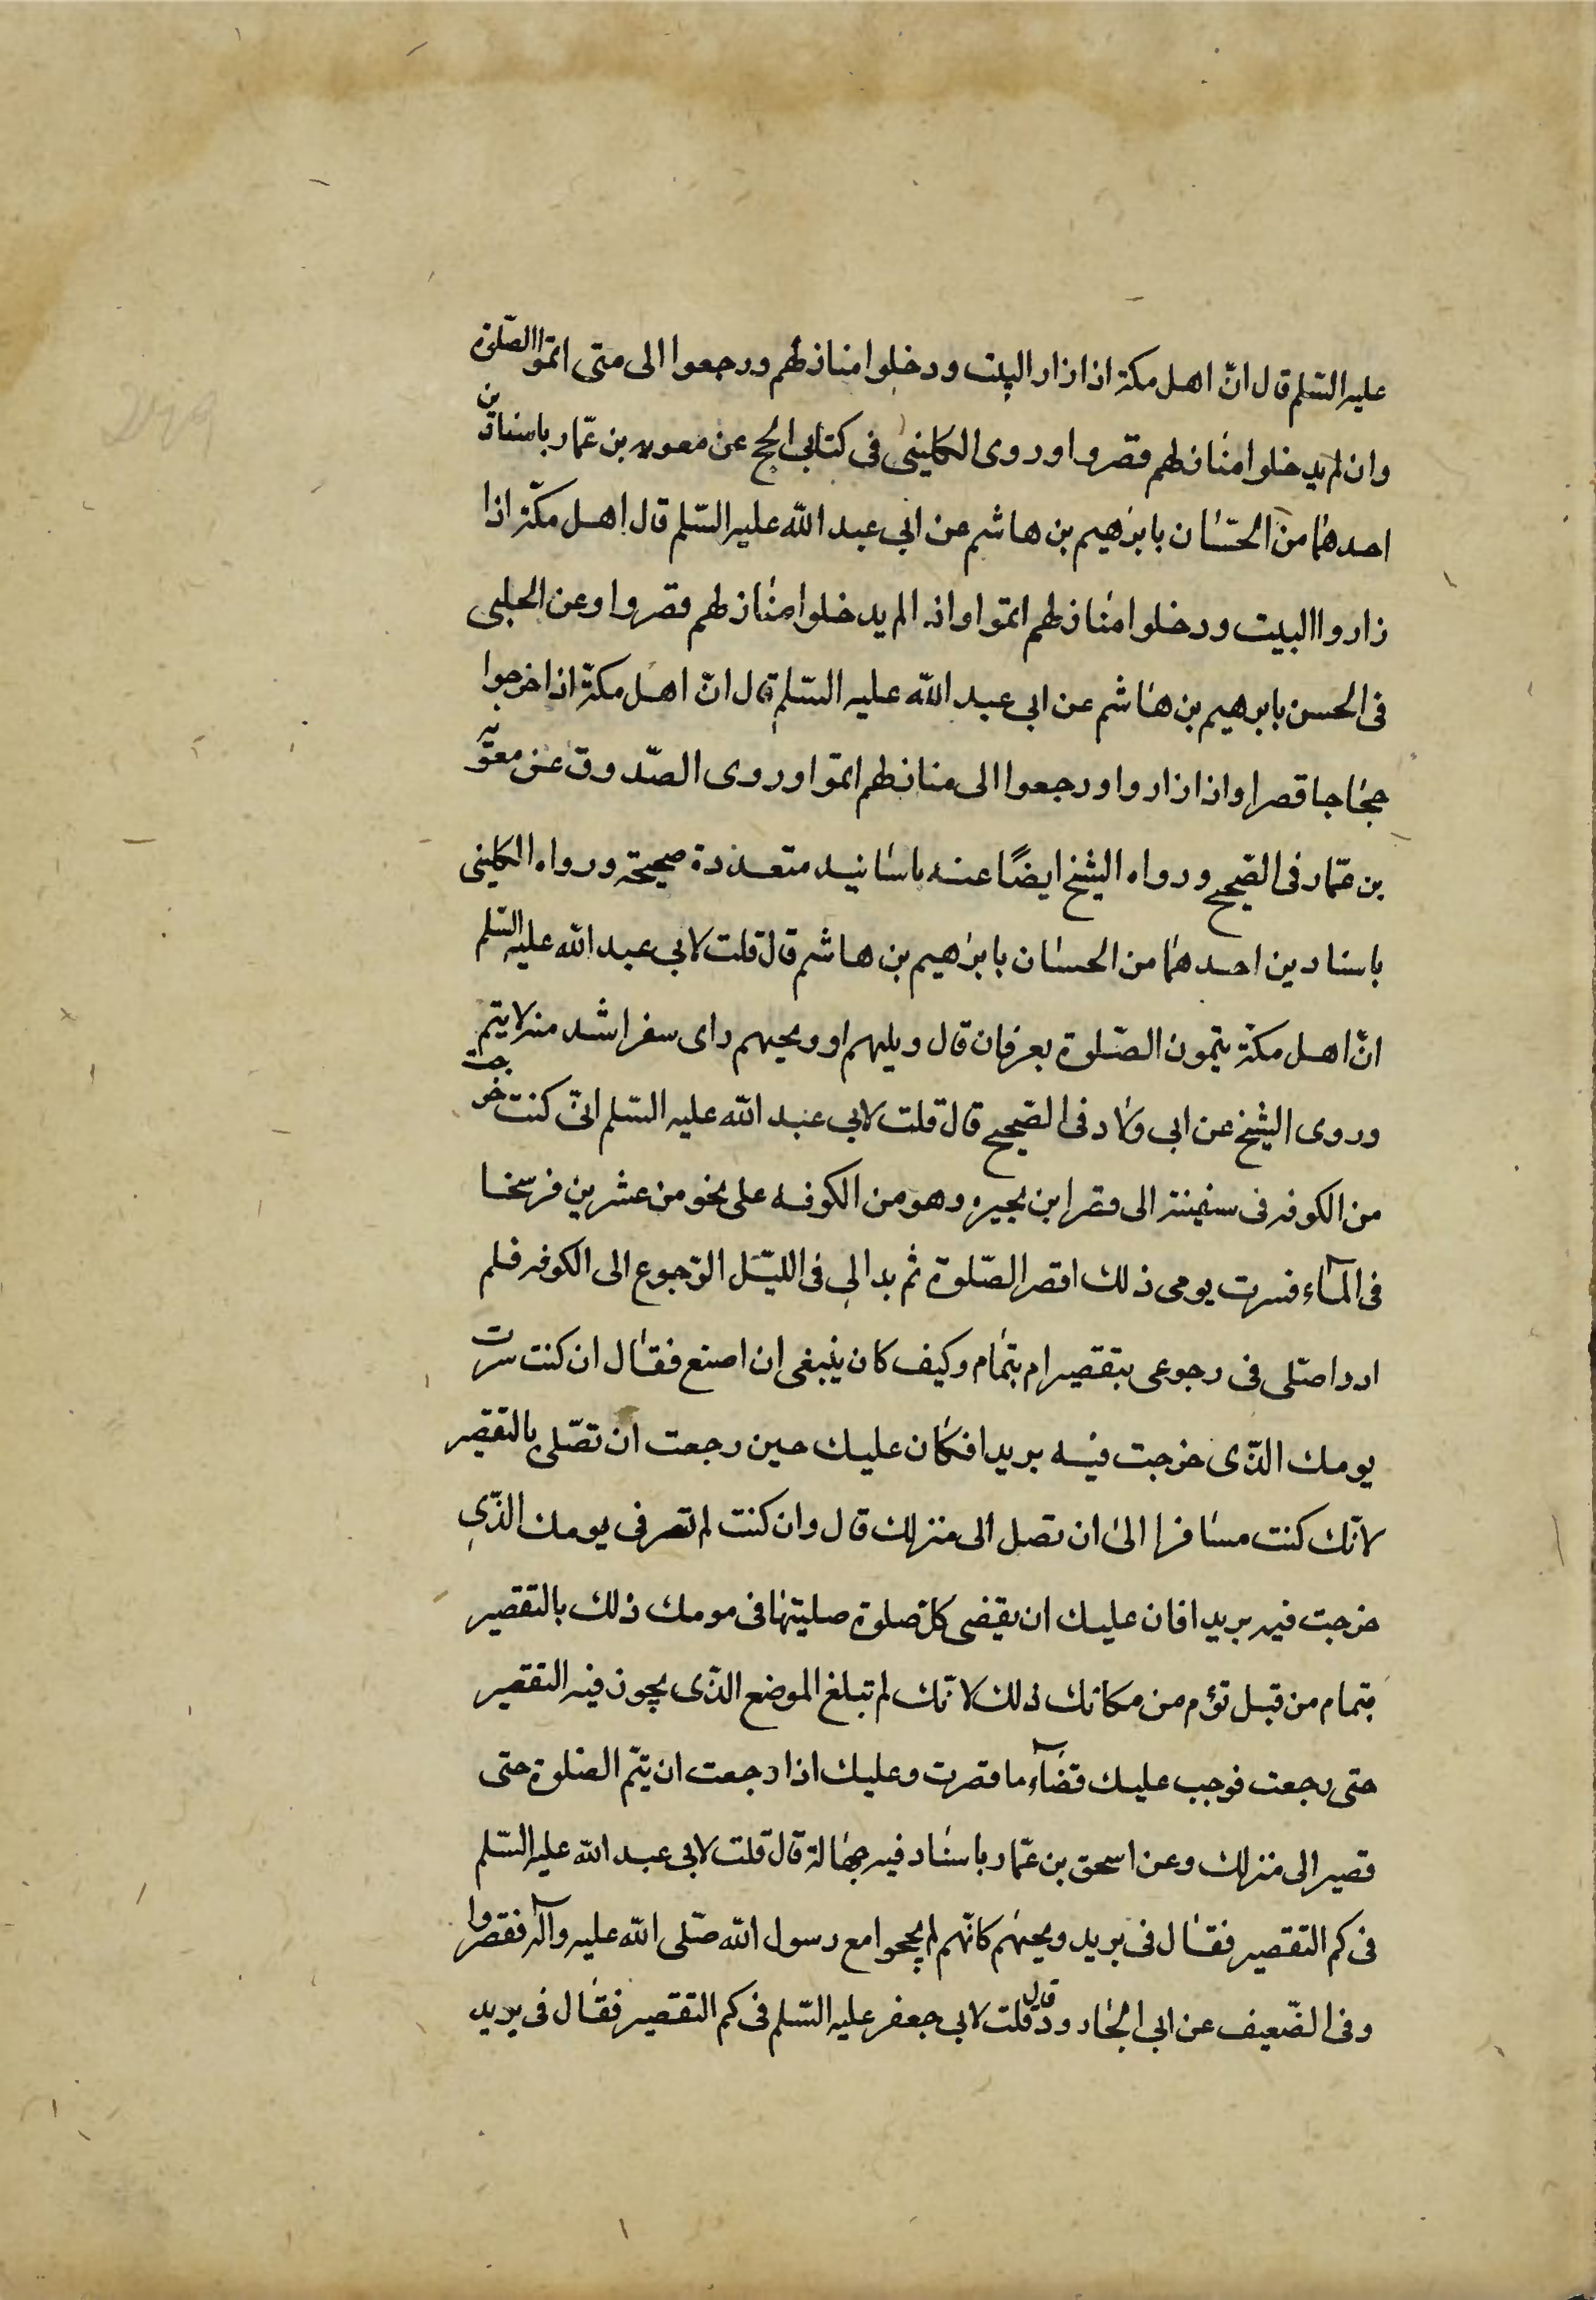 عليه السّلم قال انّ اهل مكة اذا زار البيت ودخلوا منازلهم ورجعوا الى متى اتمّوا الصّلوة
وان لم يدخلوا منازلهم قصروا وروى الكلينى فى كتابى الحج عن معويه بن عمّار باسنادين
احدهما من الحسان بابرهيم بن هاشم عن ابي عبد الله عليه السّلم قال اهل مكّة اذا
زاروا البيت ودخلوا منازلهم اتموا واذا لم يدخلوا منازلهم قصروا وعن الحلبى
فى الحسن بابرهيم بن هاشم عن ابى عبد الله عليه السّلم قال انّ اهل مكة اذا خرجوا
حجاجا قصرا واذا زاروا ورجعوا الى منازلهم اتموا وروى الصّدوق عن معوية
بن عمّار فى الصّحيح ورواه الشيخ ايضًا عنه باسانيد متعددة صحيحة ورواه الكلينى
باسنادين احدهما من الحسان بابرهيم بن هاشم قال قلت لابي عبد الله عليه السّلم
انّ اهل مكة يتمون الصّلوة بعرفات قال ويلهم او ويحهم واى سفر اشد منه لا يتم
وروى الشيخ عن ابى ولاد فى الصّحيح قال قلت لابي عبد الله عليه السّلم انّى كنت خرجت
من الكوفه فى سفينة الى قصر ابن هبيره وهو من الكوفه على نحو من عشرين فرسخا
فى المآء فسرت يومى ذلك اقصر الصّلوة ثم بدا لى فى اللّيل الرّجوع الى الكوفه فلم
ادر اصلّى فى رجوعى بتقصير ام بتمام وكيف كان ينبغى ان اصنع فقال ان كنت سرت
يومك الذّى خرجت فيه بريدا فكان عليك حين رجعت ان تصّلى بالتقصير
لانّك كنت مسافرا الى ان تصل الى منزلك قال وان كنت لم تسر فى يومك الذّى
خرجت فيه بريدا فان عليك ان يقضى كل صلوة صليتها فى يومك ذلك بالتقصير
بتمام من قبل تؤم من مكانك ذلك لانّك لم تبلغ الموضع الذّى يجوز فيه التقصير
حتى رجعت فوجب عليك قضآء ما قصرت وعليك اذا رجعت ان يتمّ الصّلوة حتى
تصير الى منزلك وعن اسحق بن عمّار باسناد فيه جهالة قال قلت لابى عبد الله عليه السّلم
فى كم التقصير فقال فى بريد ويحهم كانهم لم يحجوا مع رسول الله صلّى الله عليه وآله فقصروا
وفى الضّعيف عن ابى الجارود قال قلت لابى جعفر عليه السّلم فى كم التقصير فقال فى بريد